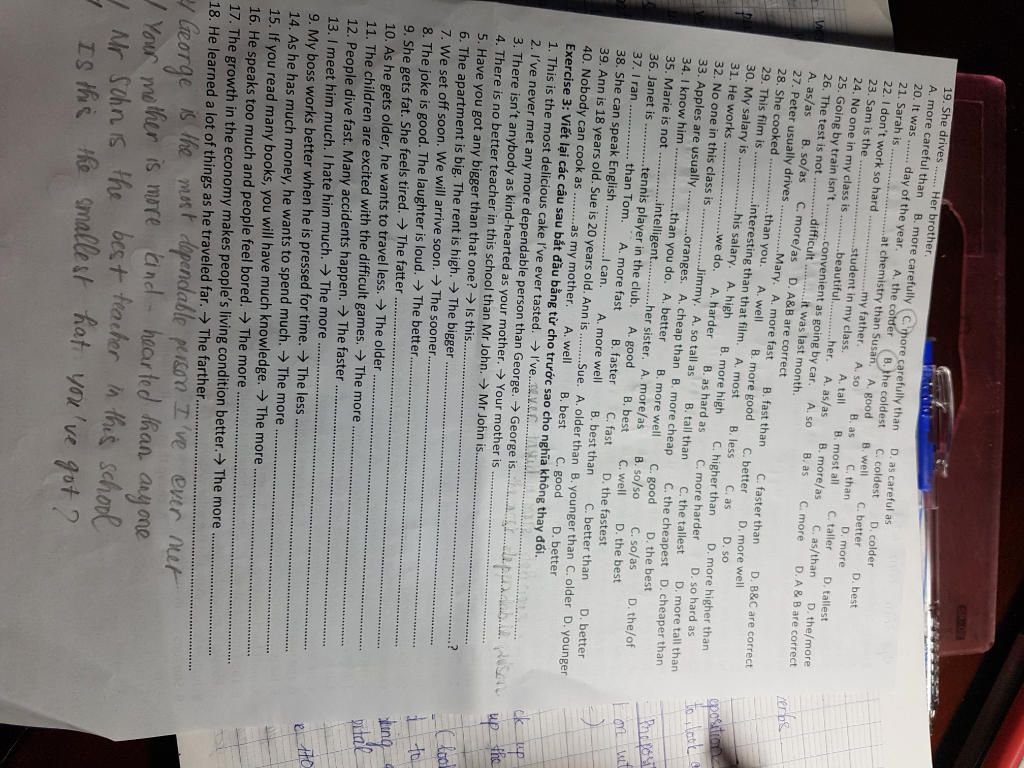 19. She drives ...... Her brother.
A. more careful than B. more carefully C. more carefully than D. as careful as
20. It was ...... day of the year. A. the colder B. the coldest C. coldest D. colder
21. Sarah is .................. at chemistry than Susan. A. good B. well C. better D. best
22. I don't work so hard ..................my father. A. so B. as C. than D. more
23. Sam is the ..................student in my class. A. tall B. most all C. taller D. tallest
24. No one in my class is ............beautiful............her. A. as/as B. more/as C. as/than D. the/more
25. Going by train isn't ............convenient as going by car. A. so B. as C. more D. A & B are correct
26. The test is not ......difficult ......it was last month.
A. as/as B. so/as C. more/as D. A&B are correct
27. Peter usually drives .........Mary. A. more fast B. fast than C. faster than D. B&C are correct
28. She cooked ..................than you. A. well B. more good C. better D. more well
29. This film is ............interesting than that film. A. most B. less C. as D. so
30. My salary is ...............his salary. A. high B. more high C. higher than D. more higher than
31. He works ..................we do. A. harder B. as hard as C. more harder D. so hard as
32. No one in this class is ............Jimmy. A. so tall as B. tall than C. the tallest D. more tall than
33. Apples are usually .........oranges. A. cheap than B. more cheap C. the cheapest D. cheaper than
34. I know him ...............than you do. A. better B. more well C. good D. the best
35. Marie is not ............intelligent............her sister. A. more/as B. so/so C. so/as D. the/of
36. Janet is ............tennis player in the club. A. good B. best C. well D. the best
37. I ran...............than Tom. A. more fast B. faster C. fast D. the fastest
38. She can speak English ............I can. A. more well B. best than C. better than D. better
39. Ann is 18 years old. Sue is 20 years old. Ann is ...... Sue. A. older than B. younger than C. older D. younger
40. Nobody can cook as ......as my mother. A. well B. best C. good D. better
Exercise 3: Viết lại các câu sau bắt đầu bằng từ cho trước sao cho nghĩa không thay đổi.
1. This is the most delicious cake I've ever tasted. → I've
2. I've never met any more dependable person than George. → George is
3. There isn't anybody as kind-hearted as your mother. → Your mother is
4. There is no better teacher in this school than Mr John. → Mr John is
5. Have you got any bigger than that one? → Is this ?
6. The apartment is big. The rent is high. → The bigger
7. We set off soon. We will arrive soon. → The sooner
8. The joke is good. The laughter is loud. → The better
9. She gets fat. She feels tired. → The fatter
10. As he gets older, he wants to travel less. → The older
11. The children are excited with the difficult games. → The more
12. People dive fast. Many accidents happen. → The faster
13. I meet him much. I hate him much. → The more
9. My boss works better when he is pressed for time. → The less
14. As he has much money, he wants to spend much. → The more
15. If you read many books, you will have much knowledge. → The more
16. He speaks too much and people feel bored. → The more
17. The growth in the economy makes people's living condition better. → The more
18. He learned a lot of things as he traveled far → The farther
George is the most dependable person I've ever met
Your mother is more kind-hearted than anyone
Mr John is the best teacher in this school
Is this the smallest hat you've got?